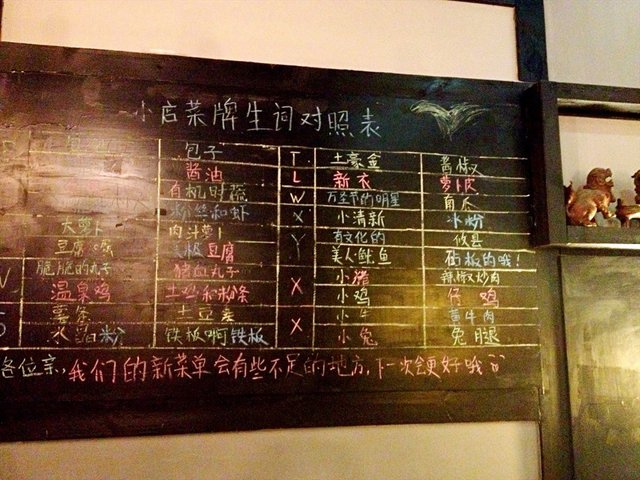 小店菜牌生词对照表
包子 T 土豪金 酱椒
酱油 L 新衣 萝卜皮
有机时蔬 W 万圣节的明星 南瓜
粉丝和虾 X 小清新 冰粉
大萝卜 肉斗萝卜 Y 有文化的 攸县
豆腐 豆腐 美人鱼 街板的哦！
脆脆的丸子 猪血丸子 小猪 辣椒炒肉
温泉鸡 土鸡和粉条 X 小鸡 仔鸡
薯条 土豆 小牛 黄牛肉
水 粉 铁板啊铁板 X 小兔 兔腿
各位亲，我们的新菜单会有些不足的地方，下一次会更好哦